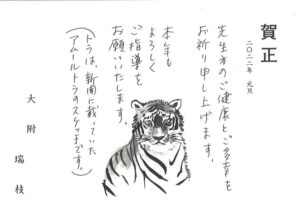 賀正
二〇二二年 元旦
先生方のご健康とご多幸を
お祈り申し上げます。
本年も
よろしく
ご指導を
お願いいたします。
(トラは、新聞に載っていた
アムールトラのスケッチです。)
大附 瑞枝